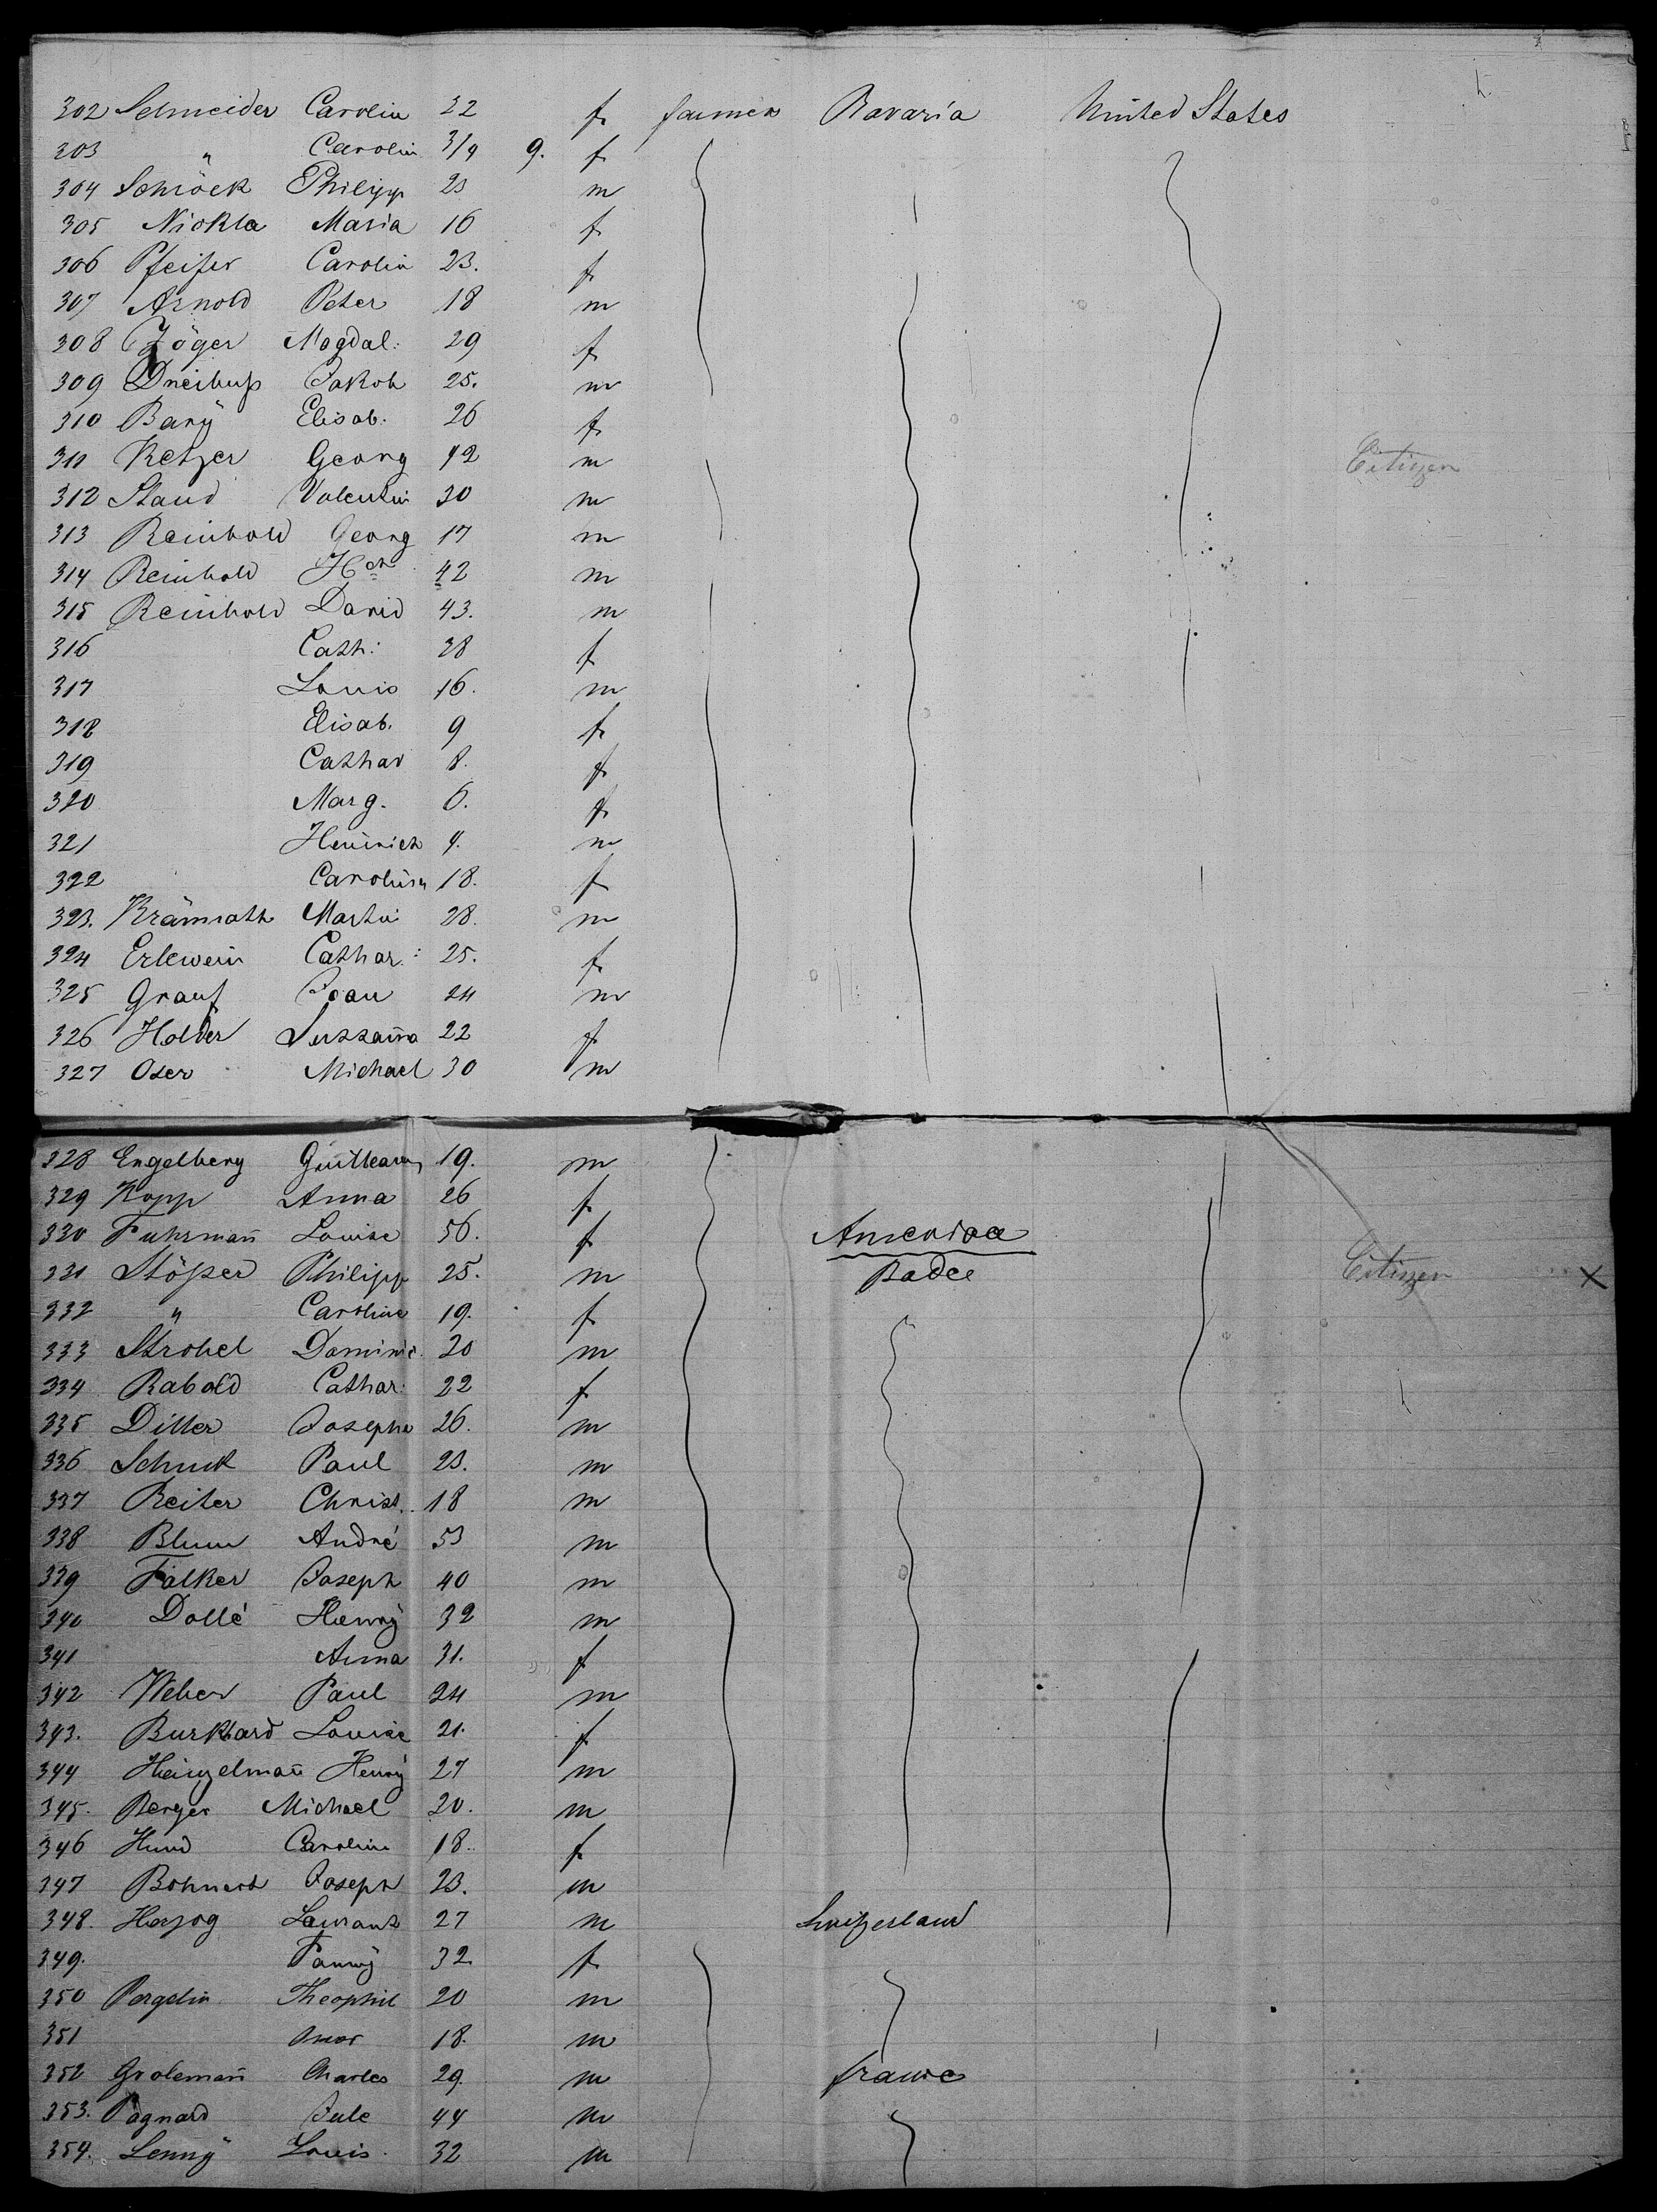 302 Schneider Carolin 22 f. farmer Bavaria United States
303 " Carolin 3/4 9. f
304 Schröck Philipp 23 m
305 Nickla Maria 16 f
306 Pfeifer Carolin 23. f
307 Arnold Peter 18 m
308 Jöger Magdal: 29 f
309 Jakob 25. m
310 Barÿ Elisab. 26 f
311 Ketzer Georg 42 m Citizen
312 Staud Valentin 30 m
313 Reinhold Georg 17 m
314 Reinhold Hch 42 m
315 Reinhold David 43. m
316 Cath: 38 f
317 Louis 16. m
318 Elisab. 9 f
319 Cathar 8. f
320 Marg. 6. f
321 Heinrich 4. m
322 Carolina 18. f
323. Krämrath Martin 28. m
324 Erlewein Cathar: 25. f
325 Grauf Jean 24 m
326 Holder Suzzana 22 f
327 Oser Michael 30 m
328 Engelberg Guilleaum 19. m
329 Kopp Anna 26 f
330 Fuhrman̄ Louise 56. f America
331 Stößer Philipp 25. m Bade Citizen X
332 " Caroline 19. f
333 Strobel Dominic. 20 m
334 Rabold Cathar: 22 f
335 Ditter Joseph 26. m
336 Schuck Paul 23. m
337 Reiter Christ. 18 m
338 Blum André 53 m
339 Falker Joseph 40 m
340 Dollé Henrÿ 32 m
341 Anna 31. f
342 Weber Paul 24 m
343. Burkhard Louise 21. f
344 Heinzelman̄ Henrÿ 27 m
345. Berger Michael 20. m
346 Hund Caroline 18. f
347 Bohnert Joseph 23. m
348. Herzog Laurant 27 m Switzerland
349. Fannÿ 32 f
350 Theophil 20 m
351 18. m
352 Groleman̄ Charles 29. m france
353. Pagnard Jule 44 m
354. Lennÿ Louis. 32 m